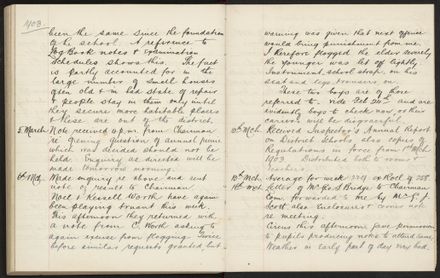 1903.
been the same since the foundation
of the school. A reference to
Log Book notes & Examination
schedules shows this. The fact
is partly accounted for in the
large number of small houses
often old & in bad state of repair
& people stay in them only until
they secure more habitable places
& these are out of the district.
5th March Note received p.m. from Chairman
re opening question of annual picnic
which was decided should not be
held. Enquiry as directed will be
made tomorrow morning.
6th Mch. Made enquiry re above and sent
note of result to Chairman
Noel & Kessell Worth have again
been playing truant this week.
This afternoon they returned with
a note from C. Worth asking to
again excuse from flogging. Twice
before similar requests granted, but
warning was given that next offence
would bring punishment from me.
I therefore flogged the elder severely
the younger was let off lightly
Instrument, school strap, on his
seat and legs, trousers on.
These two boys are of those
referred to vide Feb 20th and are
evidently boys to check now or their
career will be disgraceful.
Mch. Received Inspector's Annual Report
on District Schools also copies of
Regulations in force from 1st April
1903. Distributed both to rooms &
teachers.
Mch. Average for week 329 of Roll of 358.
Mch Letter of Mr. Bridge to Chairman
Com. forwarded to me by Mr G. J.
Scott, also enclosures comes
re meeting.
Circus this afternoon, gave permission
to pupils producing notes to attend same.
Weather in early part of day very bad.